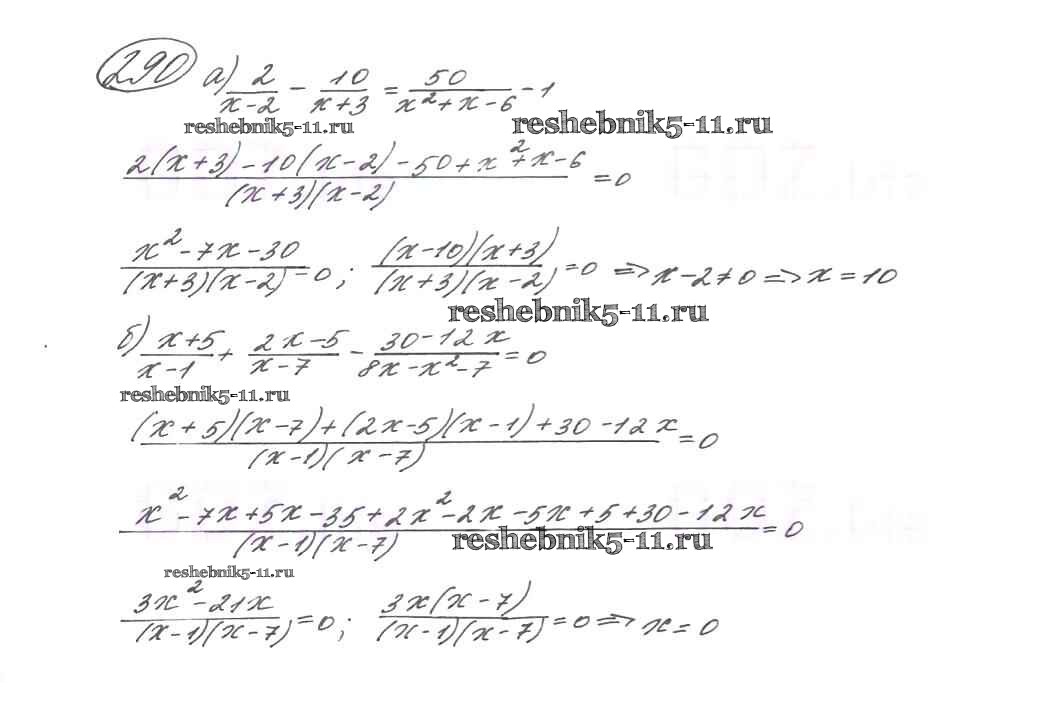 290 а) 2/(x-2) - 10/(x+3) = 50/(x²+x-6) - 1
reshebnik5-11.ru reshebnik5-11.ru
(2(x+3)-10(x-2)-50+x²+x-6)/((x+3)(x-2)) = 0
(x²-7x-30)/((x+3)(x-2)) = 0; ((x-10)(x+3))/((x+3)(x-2)) = 0 => x-2≠0 => x=10
reshebnik5-11.ru
б) (x+5)/(x-1) + (2x-5)/(x-7) - (30-12x)/(8x-x²-7) = 0
reshebnik5-11.ru
((x+5)(x-7)+(2x-5)(x-1)+30-12x)/((x-1)(x-7)) = 0
(x²-7x+5x-35+2x²-2x-5x+5+30-12x)/((x-1)(x-7)) = 0
reshebnik5-11.ru
reshebnik5-11.ru
(3x²-21x)/((x-1)(x-7)) = 0; (3x(x-7))/((x-1)(x-7)) = 0 => x=0